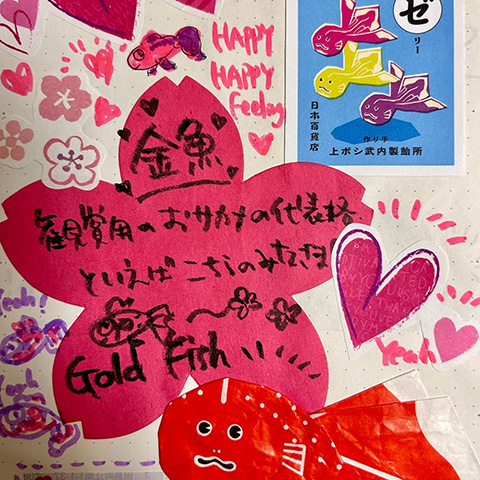 HAPPY
HAPPY
Feeling
ゼ
リー
日本百貨店
作り手
上ボシ武内製飴所
金魚
観賞用のおサカナの代表格
といえばこちらのみなさま!
Gold Fish
Yeah!
Yeah
Yeah